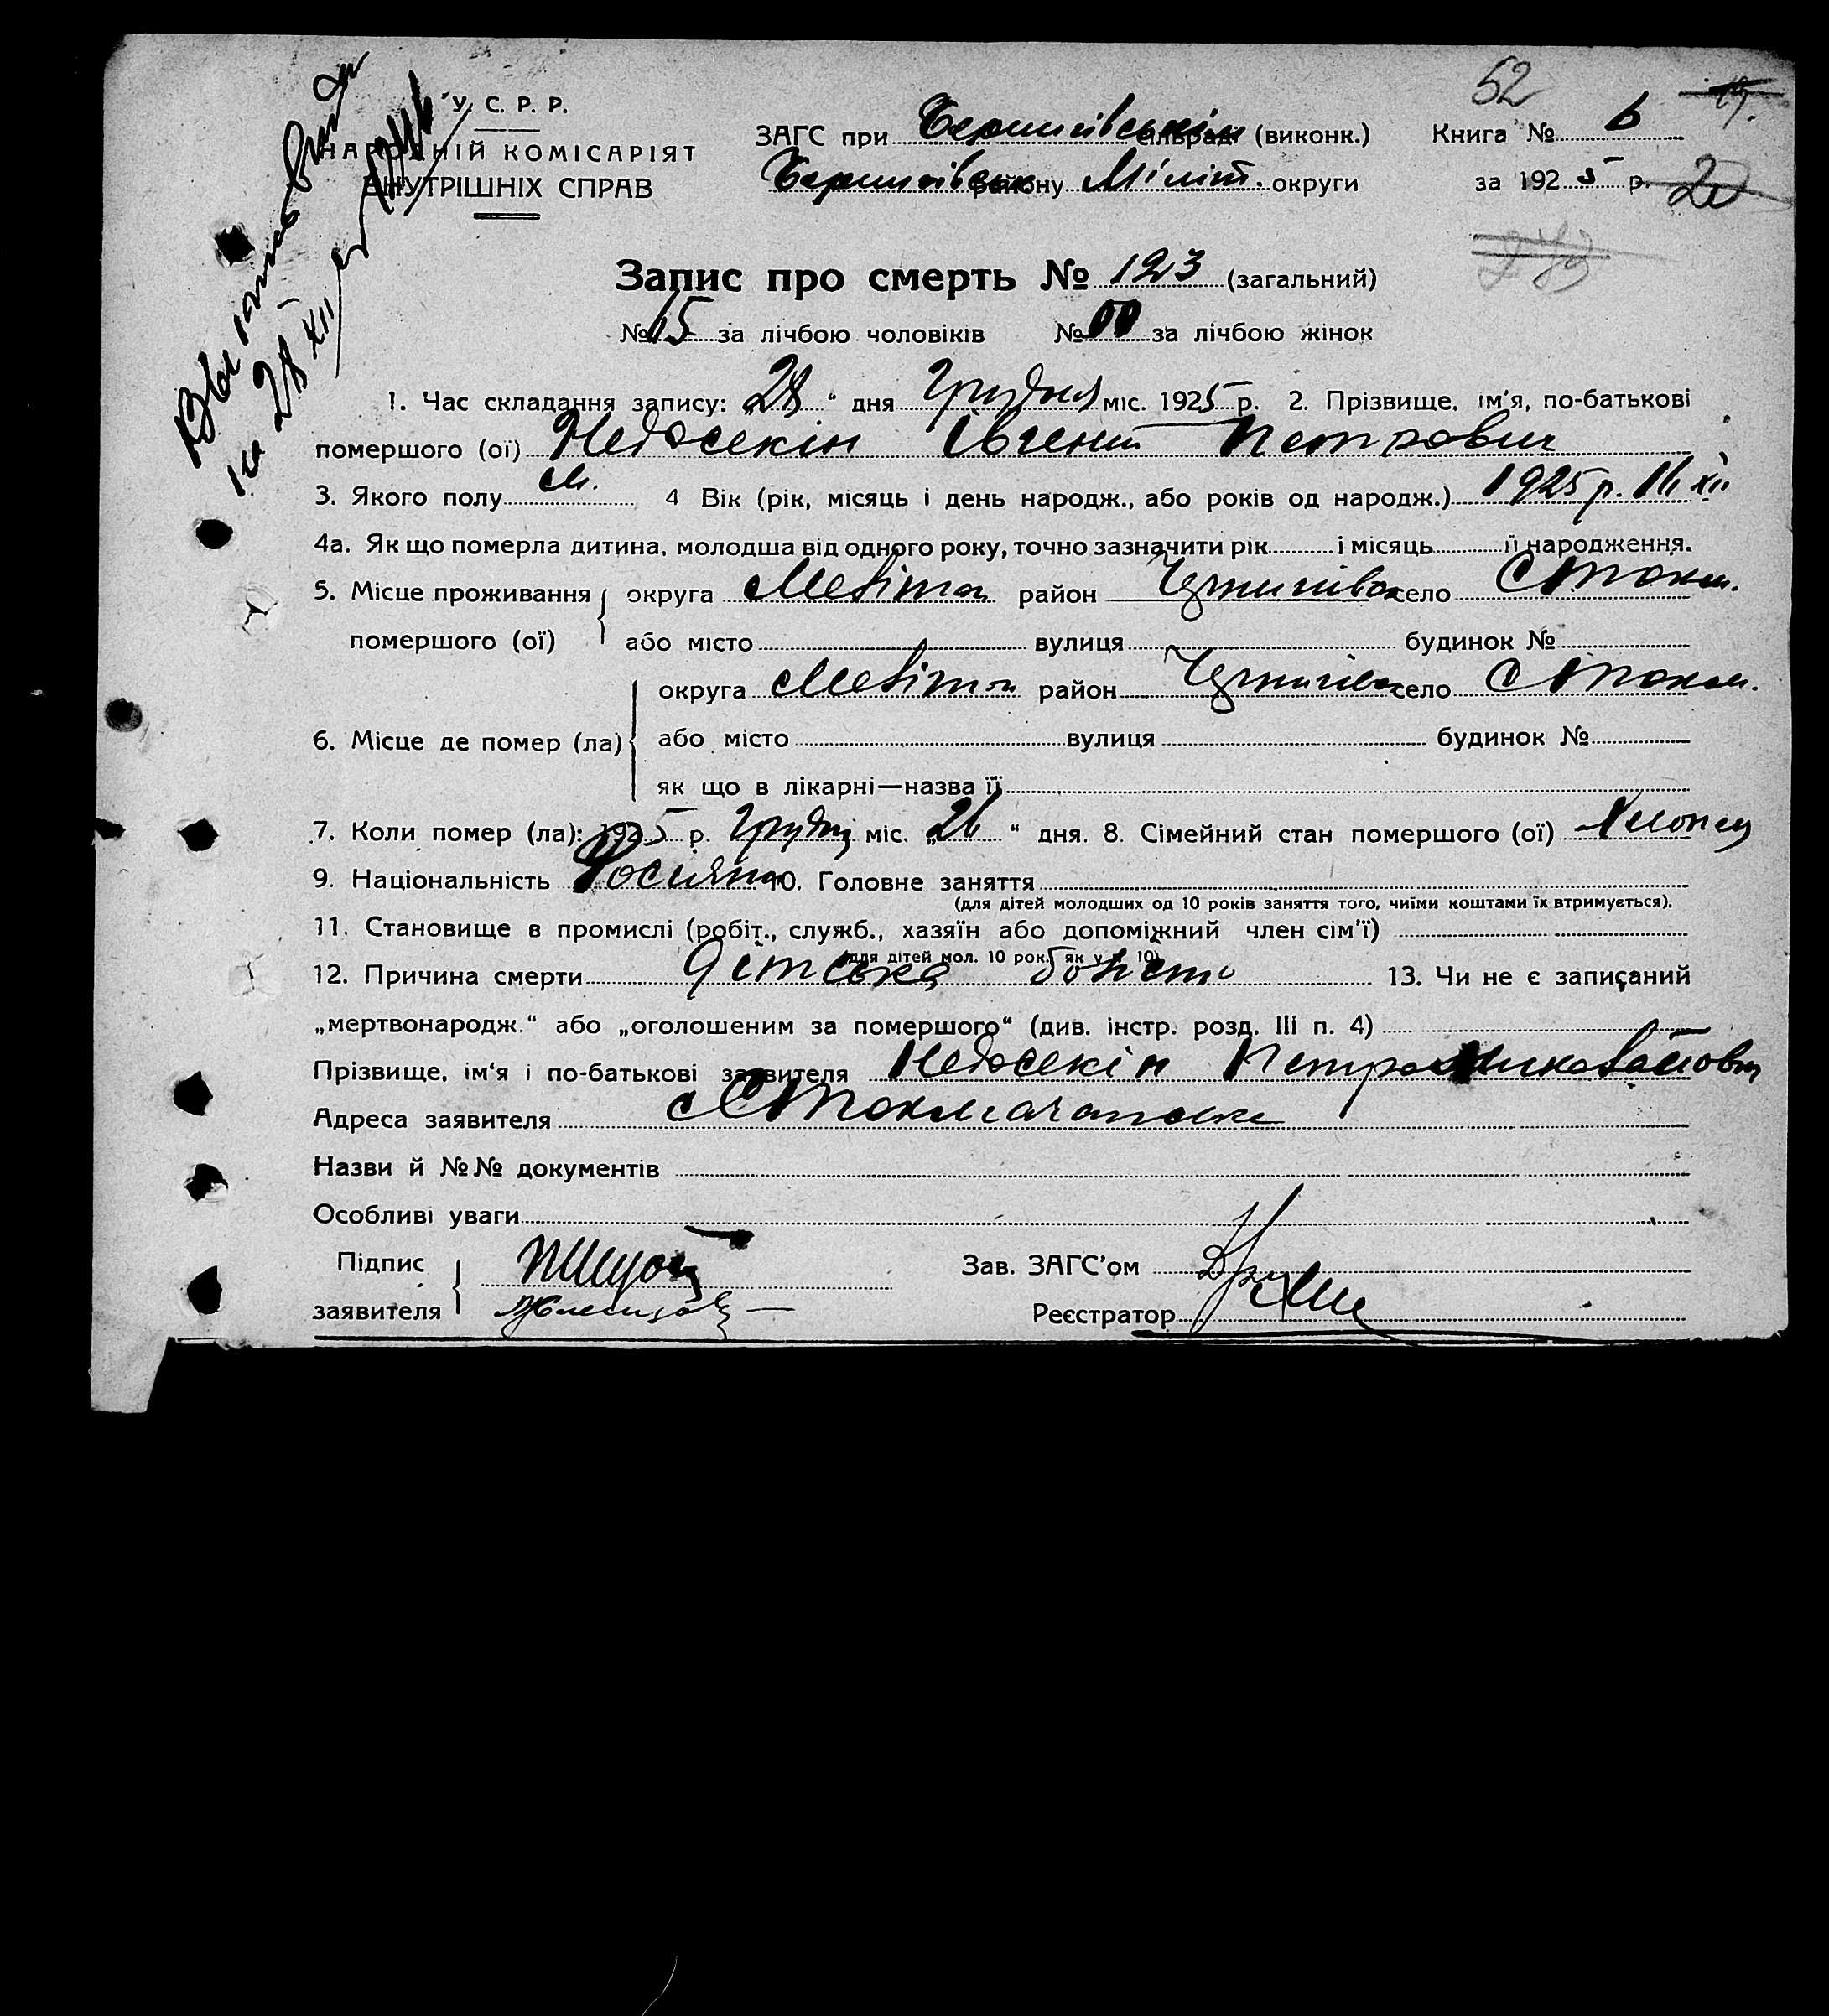 52 19.
У. С. Р. Р.
НАРОДНІЙ КОМІСАРІЯТ
ВНУТРІШНІХ СПРАВ
ЗАГС при Чернигівськім сільраді (виконк.) Книга № 6
Чернигівськ району Міліт. округи за 1925 р. 20
273
Запис про смерть № 123 (загальний)
№ 15 за лічбою чоловіків № 00 за лічбою жінок
на 28 XII
1. Час складання запису: „28“ дня Грудня міс. 1925 р. 2. Прізвище, ім’я, по-батькові
помершого (ої) Недосекін Івгений Петрович
3. Якого полу м. 4 Вік (рік, місяць і день народж., або років од народж.) 1925 р. 16 XII
4а. Як що померла дитина, молодша від одного року, точно зазначити рік і місяць її народження.
5. Місце проживання округа Мелітоп район Чернигівск село С Токм.
помершого (ої) або місто вулиця будинок №
округа Мелітоп район Чернигівск село С Токм.
6. Місце де помер (ла) або місто вулиця будинок №
як що в лікарні—назва її
7. Коли помер (ла): 1925 р. Грудня міс. „26“ дня. 8. Сімейний стан помершого (ої) Хлопец
9. Національність Росиянин 10. Головне заняття
(для дітей молодших од 10 років заняття того, чиїми коштами їх втримується).
11. Становище в промислі (робіт., служб., хазяїн або допоміжний член сім’ї)
(для дітей мол. 10 рок. як у п. 10)
12. Причина смерти Дітська болість 13. Чи не є записаний
„мертвонародж.“ або „оголошеним за помершого“ (див. інстр. розд. III п. 4)
Прізвище, ім‘я і по-батькові заявителя Недосекін Петро Николайович
Адреса заявителя с Токмачанське
Назви й №№ документів
Особливі уваги
Підпис Зав. ЗАГС’ом
заявителя Реєстратор